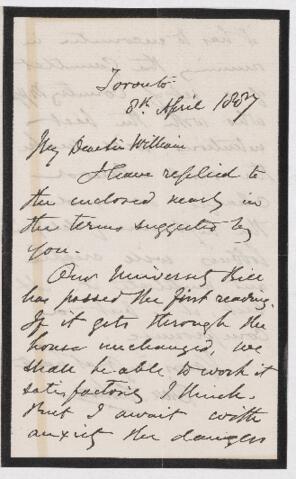 Toronto
8th April 1887
My Dear Sir William
I have replied to
the enclosed nearly in
the terms suggested by
you.
Our University Bill
has passed the first reading.
If it gets through the
house unchanged, we
shall be able to work it
satisfactorily I think.
But I await with
anxiety the dangers